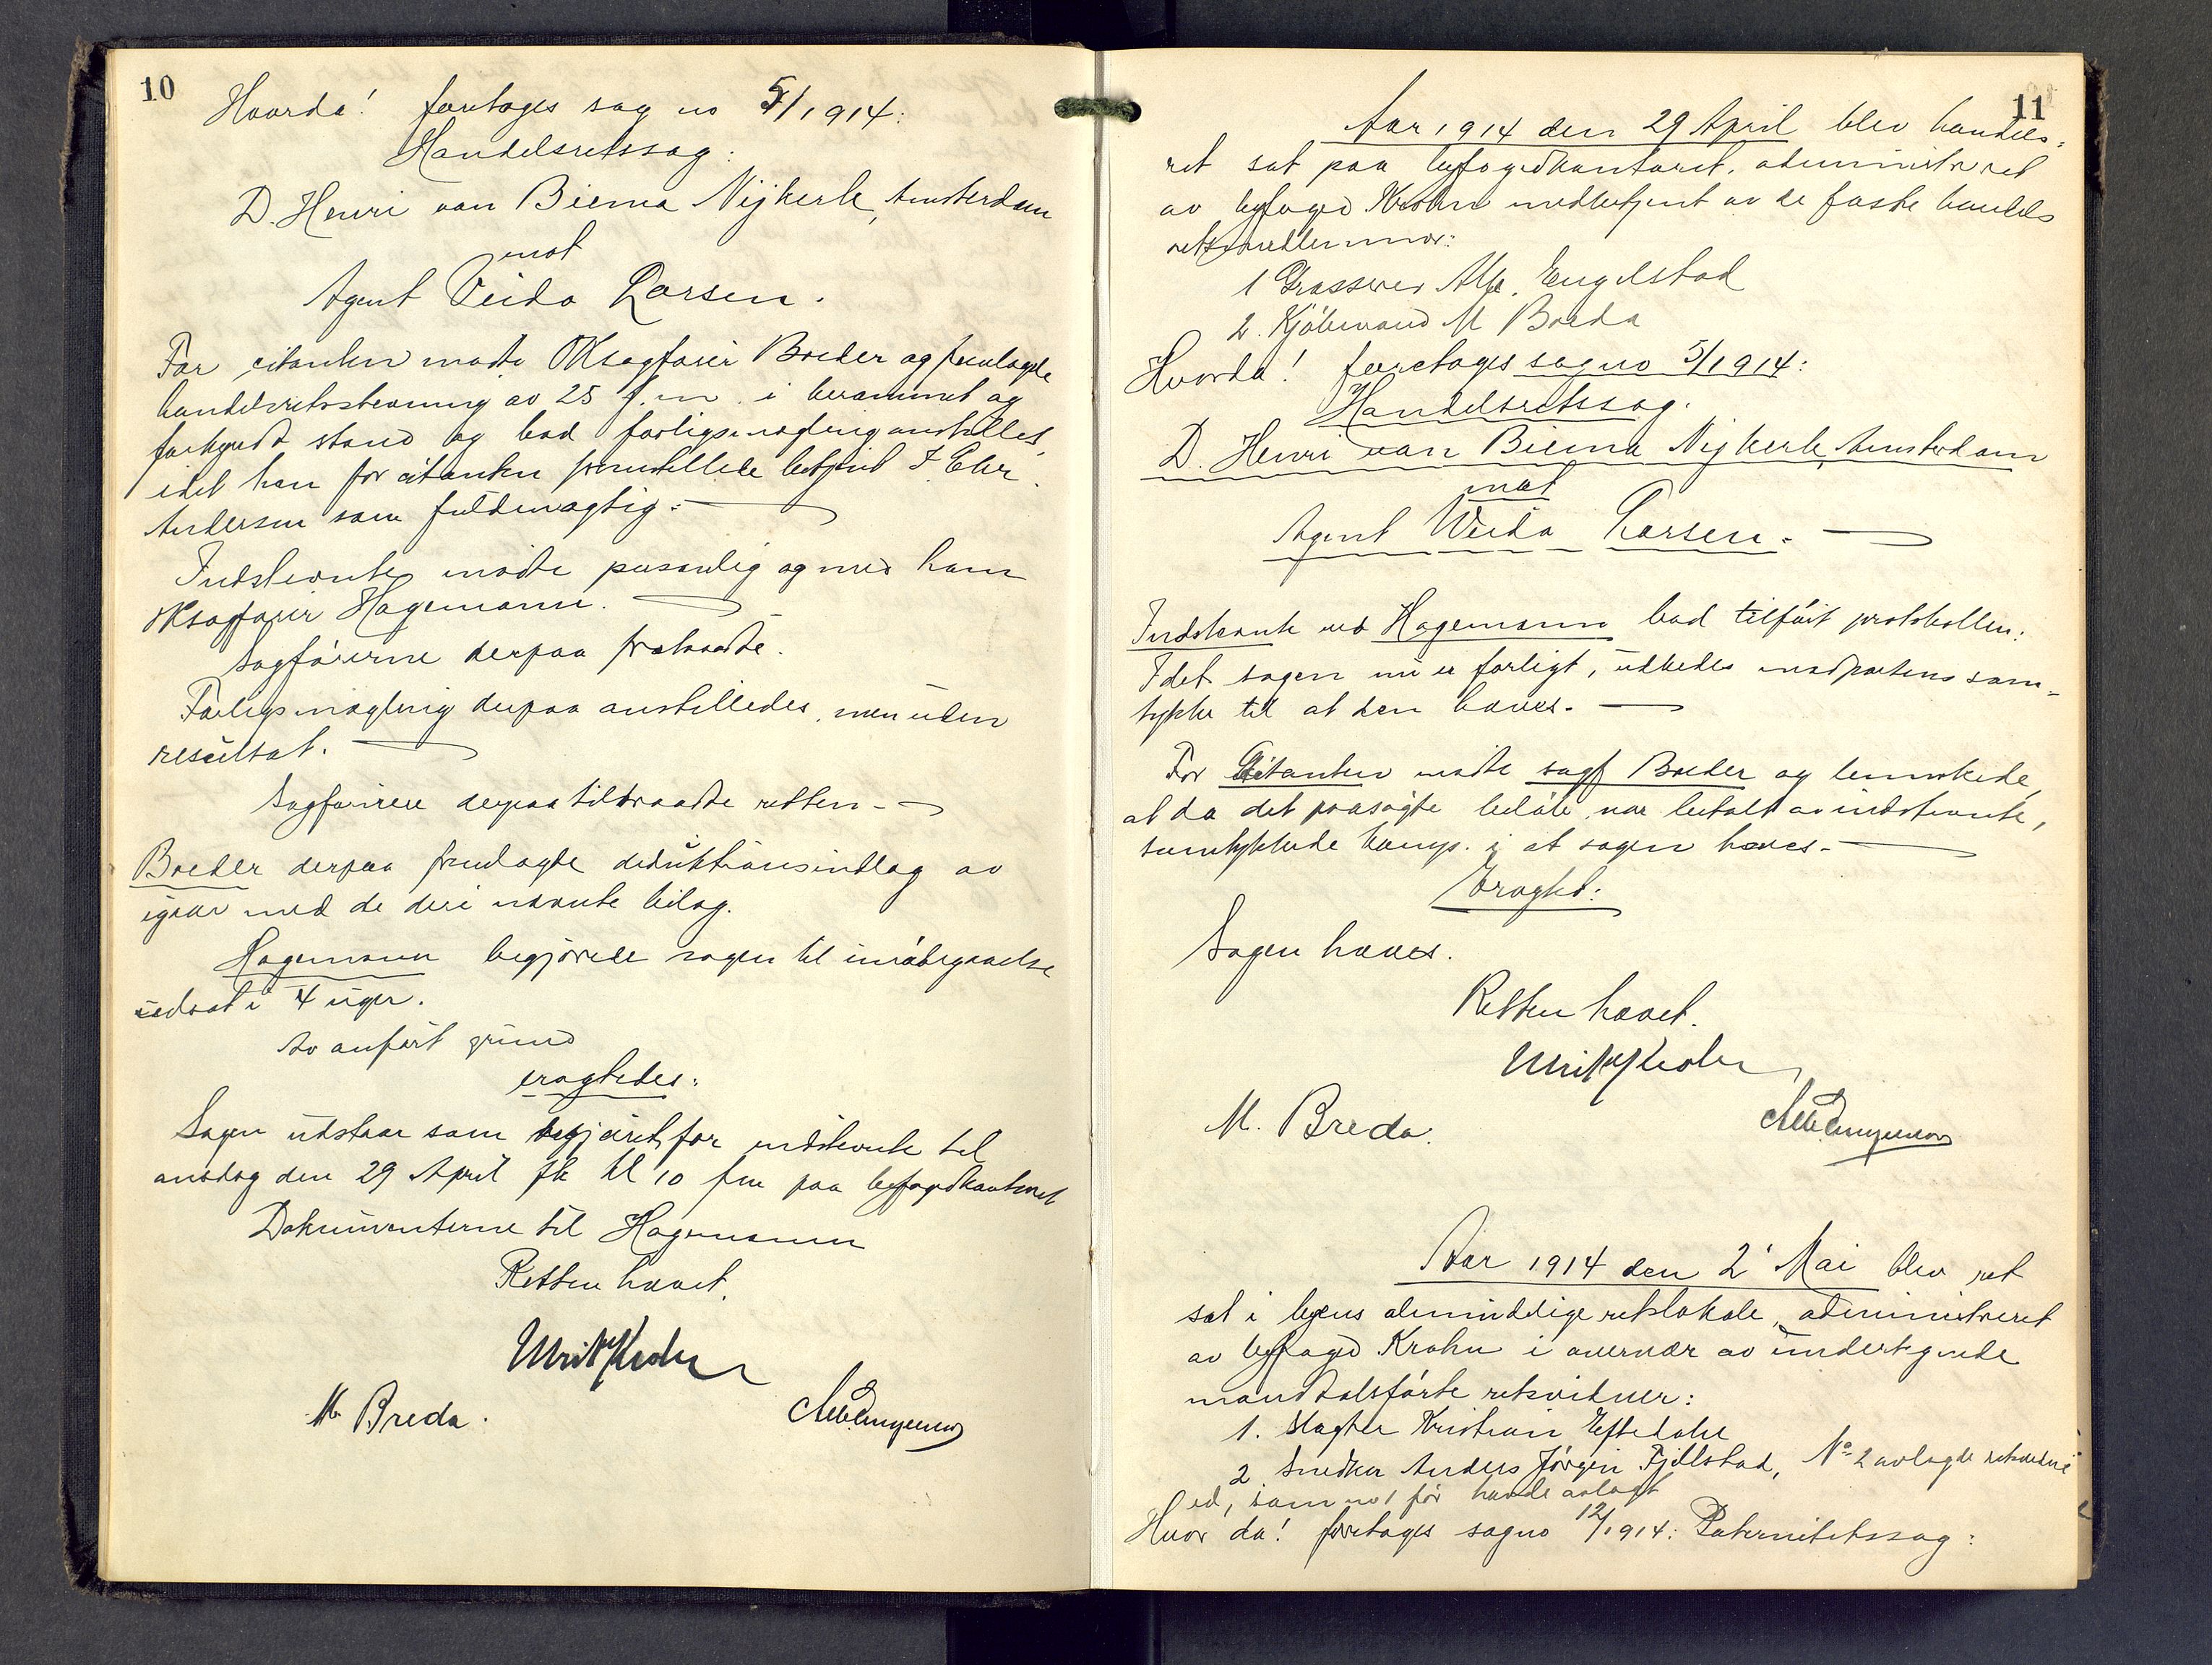 10
Hvorda! foretages sag no 5/1914:
Handelsretssag:
D. Henri van Biema Nijkerk, Amsterdam
mot
Agent Veida Larsen.
For citanten mødte OKsagfører Breder og fremlagde
handelsretsstevning av 25 f.m. i berammet og
forkyndt stand og bad forligsmægling anstilles,
idet han for citanten fremstillede betjent F. Chr.
Andersen som fuldmægtig.
Indstevnte mødte personlig og med ham
OKsagfører Hagemann.
Sagførerne derpaa fratraadte.
Forligsmægling derpaa anstilledes, men uten
resultat.
Sagførerne derpaa tiltraadte retten.
Breder derpaa fremlagde deduktionsindlæg av
igaar med de deri nævnte bilag.
Hagemann begjærede sagen til imøtegaaelse
udsat i 4 uger.
Av anført grund
eragtedes:
Sagen utstaar som begjæret for indstevnte til
onsdag den 29 April kl 10 fm paa byfogedkontoret
Dokumenterne til Hagemann
Retten hævet.
M. Breda.
11
Aar 1914 den 29 April blev handels-
ret sat paa byfogedkontoret, administreret
av byfoged Krohn medbetjent av de faste handels
retsmedlemmer:
1 Grosserer Alb. Engelstad
2. Kjøbmand M Breda
Hvorda! foretages sag no 5/1914:
Handelsretssag.
D. Henri van Biema Nijkerk, Amsterdam
mot
Agent Weida Larsen.
Indstevnte ved Hagemann bad tilført protokollen:
Idet sagen nu er forligt, utbedes modpartens sam-
tykke til at den hæves.
For Citanten mødte sagf Breder og bemerkede,
at da det paasøgte beløb var betalt av indstevnte,
samtykkede hans i at sagen hæves.
Eragtet:
Sagen hæves.
Retten hævet.
M. Breda.
Aar 1914 den 2 Mai blev ret
sat i byens almindelige retslokale, administreret
av byfoged Krohn i overvær av undertegnede
mandtalsførte retsvidner:
1. Slagter Kristian Eftedahl
2 Snedker Anders Jørgen Fjellstad, No 2 avlagde
ed, som no 1 før havde avlagt
Hvor da! foretages sagno 12/1914: Paternitetssag: